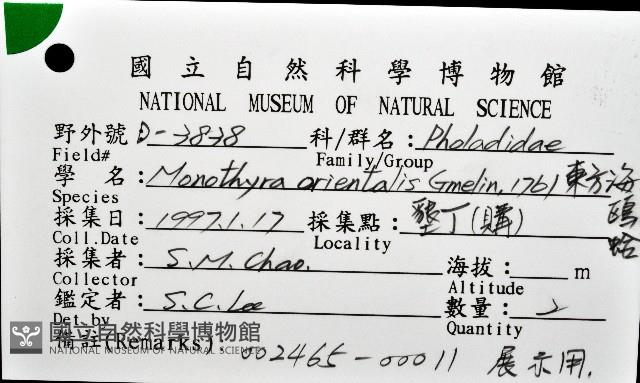 國立自然科學博物館
NATIONAL MUSEUM OF NATURAL SCIENCE
野外號:D-3838 科/群名:Pholadidae
Field# Family/Group
學 名:Monothyra orientalis Gmelin, 1761 東方海鷗蛤
Species
採集日:1997.1.17 採集點:墾丁(購)
Coll.Date Locality
採集者:S.M. Chao. 海拔: m
Collector Altitude
鑑定者:S.C. Lee 數量:2
Det.by Quantity
國立自然科學博物館
NATIONAL MUSEUM OF NATURAL SCIENCE
備註(Remarks) 002465-00011 展示用.